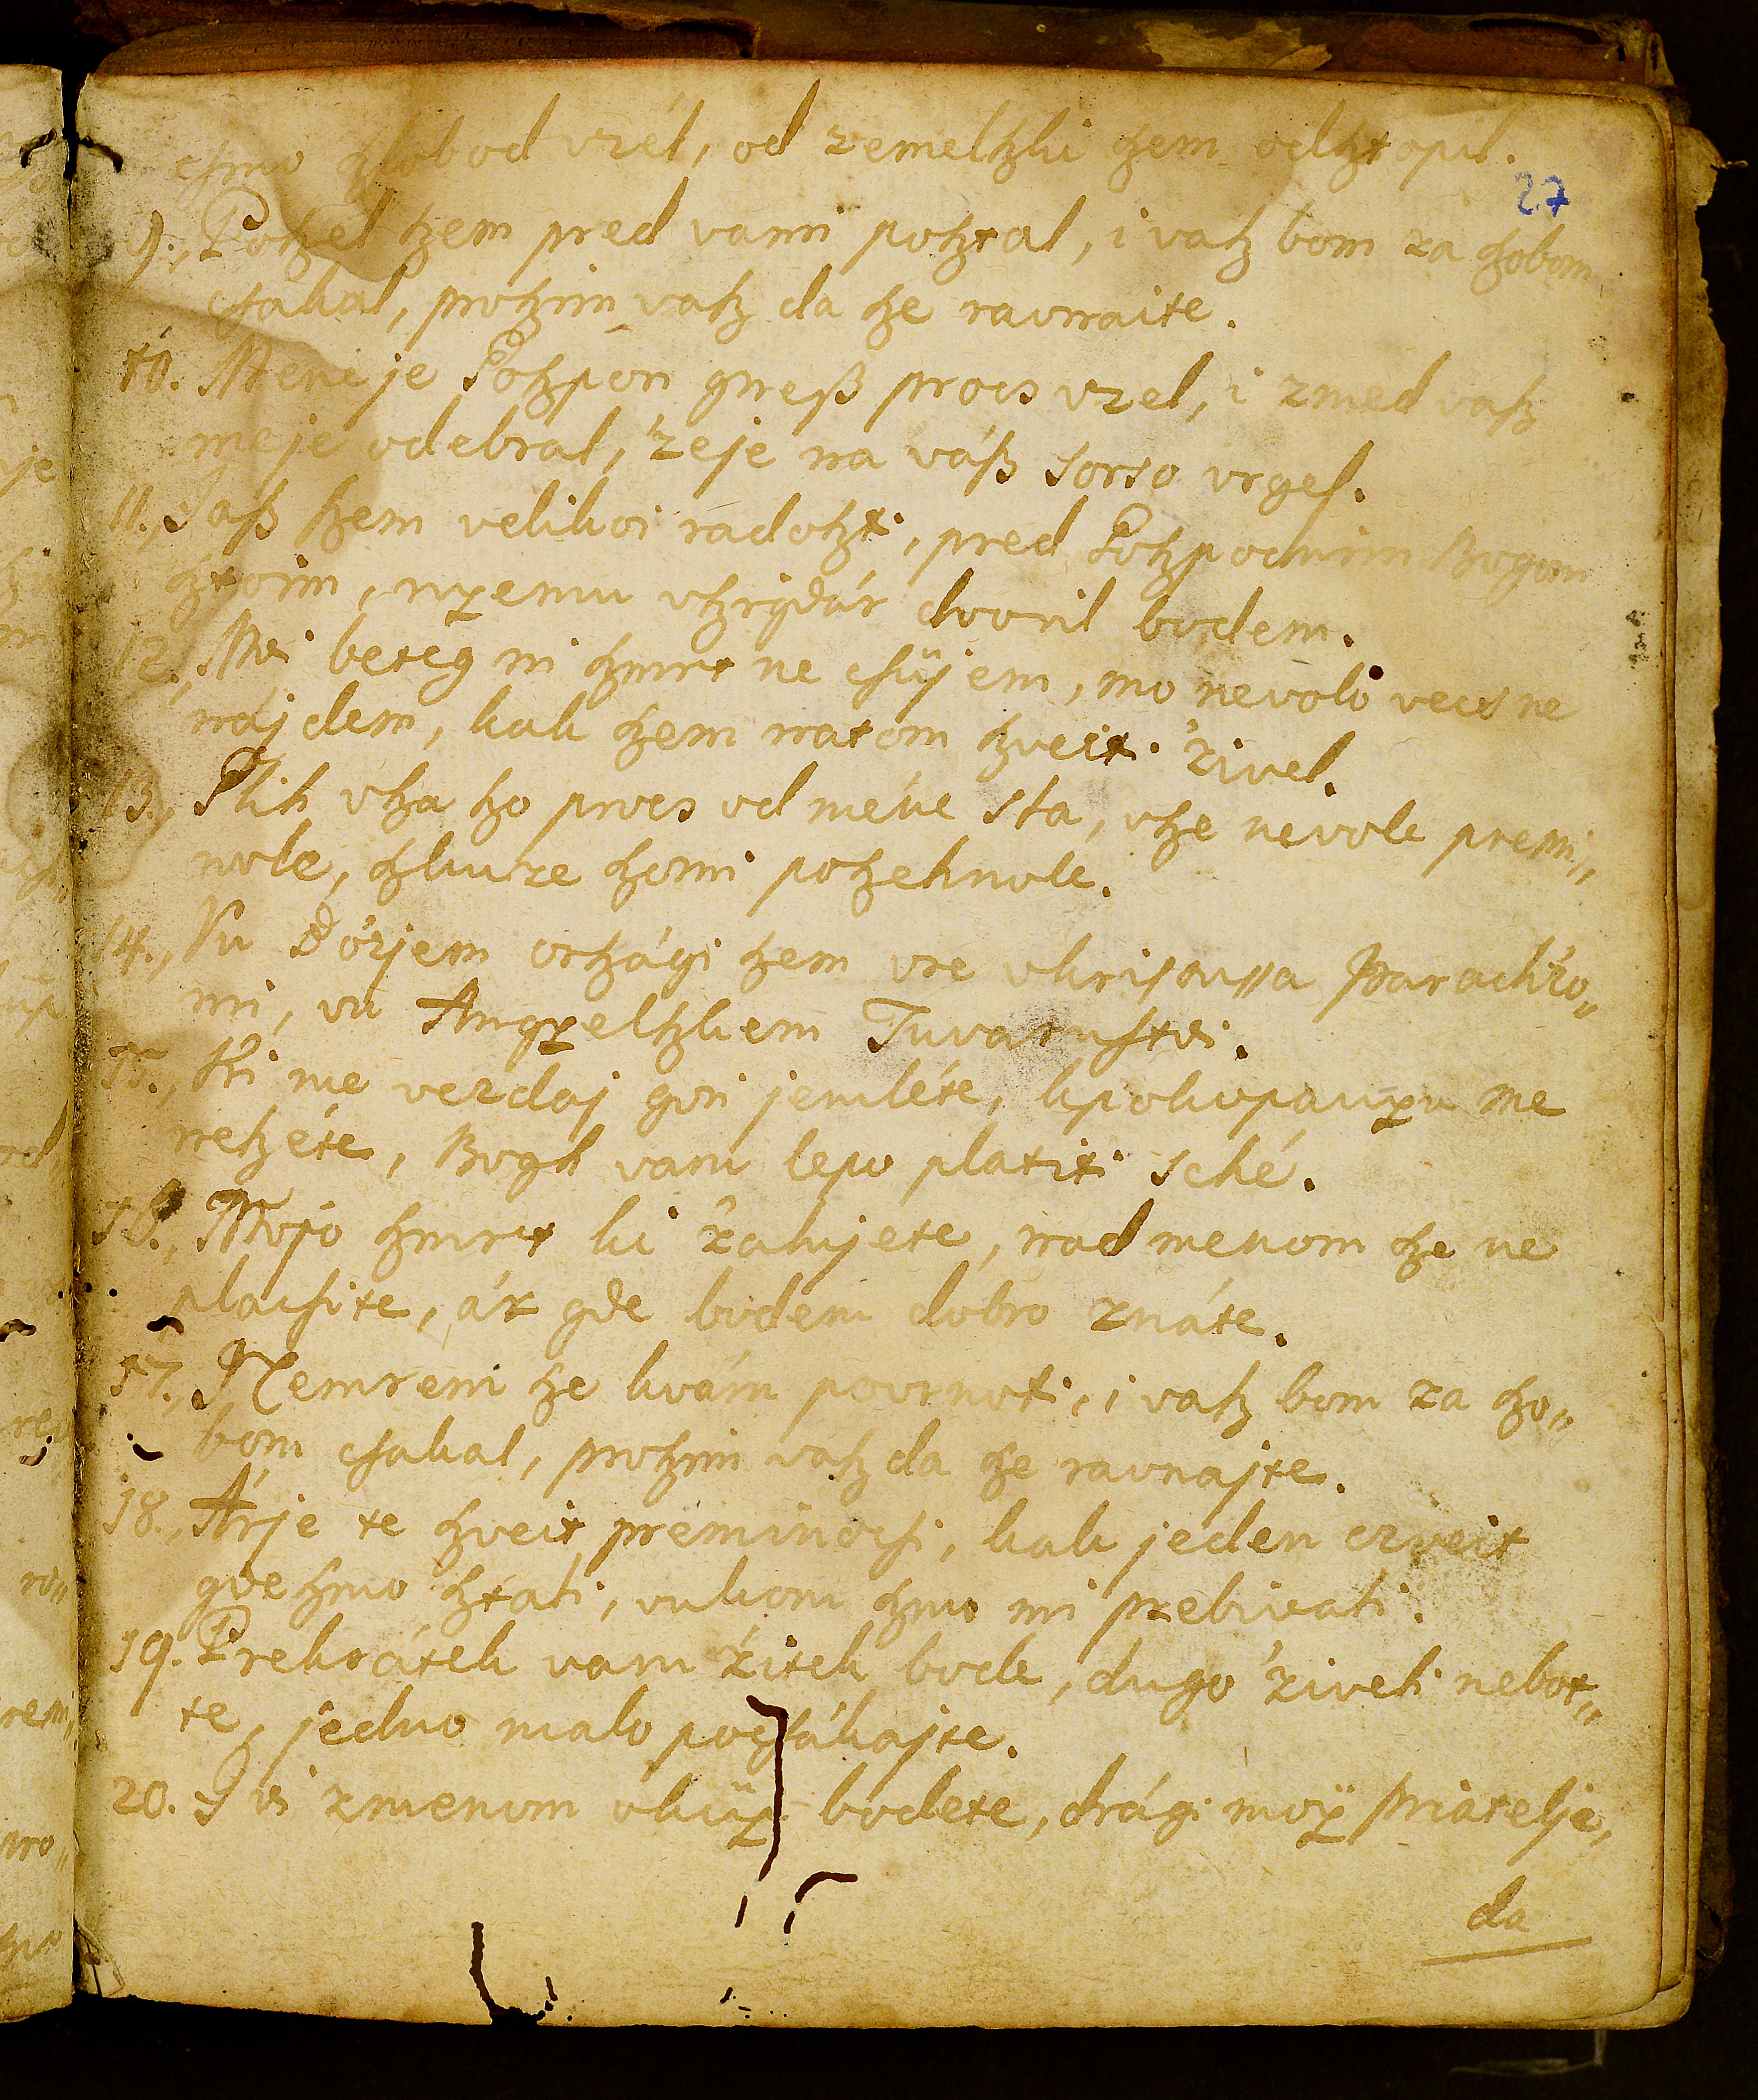 ſmo ßlobod vzél, od zemelßki ßem odßtopil.
27
9., Poßel ßem pred vami poßtal, i vaß bom za ßobom
cſakal, proßim vaß da ße ravnaite.
10. Meni je Goßpon greß procs vzel, i zmed vaß
me je odebral, 'zeje na váß sorso vrgel.
11., Jaß ßem velikoi radoßti, pred Goßpodnim Bogom
ßtoim, nyemu vßigdár dvoril bodem.
12., Ni beteg ni ßmrt ne cſüjem, no nevolo vecs ne
nájdem, kak ßem natom ßveiti 'zivel.
13., Plih vßa ßo procs od méne sla, vße nevole premi„
nole, ßkuze ßomi poßehnole.
14., Vu Bó'zjem orßági ßem vre vkristussa Parad'izo„
mi, vu Angyelßkem Tuvarustvi.
15., Ki me vezdaj gori jemléte, kpokopanyu me
neßéte, Bogh vam lepo platiti sché.
16., Mojo ßmrt ki 'zalujete, nad menom ße ne
placſite, ár gde bodem dobro znáte.
17., Nemrem ße kvám povrnoti, i vaß bom za ßo„
bom cſakal, proßim vaß da ße ravnajte.
18., Árje te ßveit preminocſi, kak jeden czveit
gdeßmo ßtati, vukom ßmo mi prebivati.
19. Prekrátek vam 'zitek bode, dugo 'ziveti nebot„
te, jedno malo pocſákajte.
20. I vi zmenom vküp bodete, drági moÿ priatelje,
da